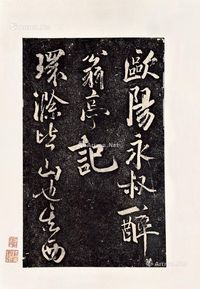 歐陽永叔醉
翁亭記
環滁皆山也其西